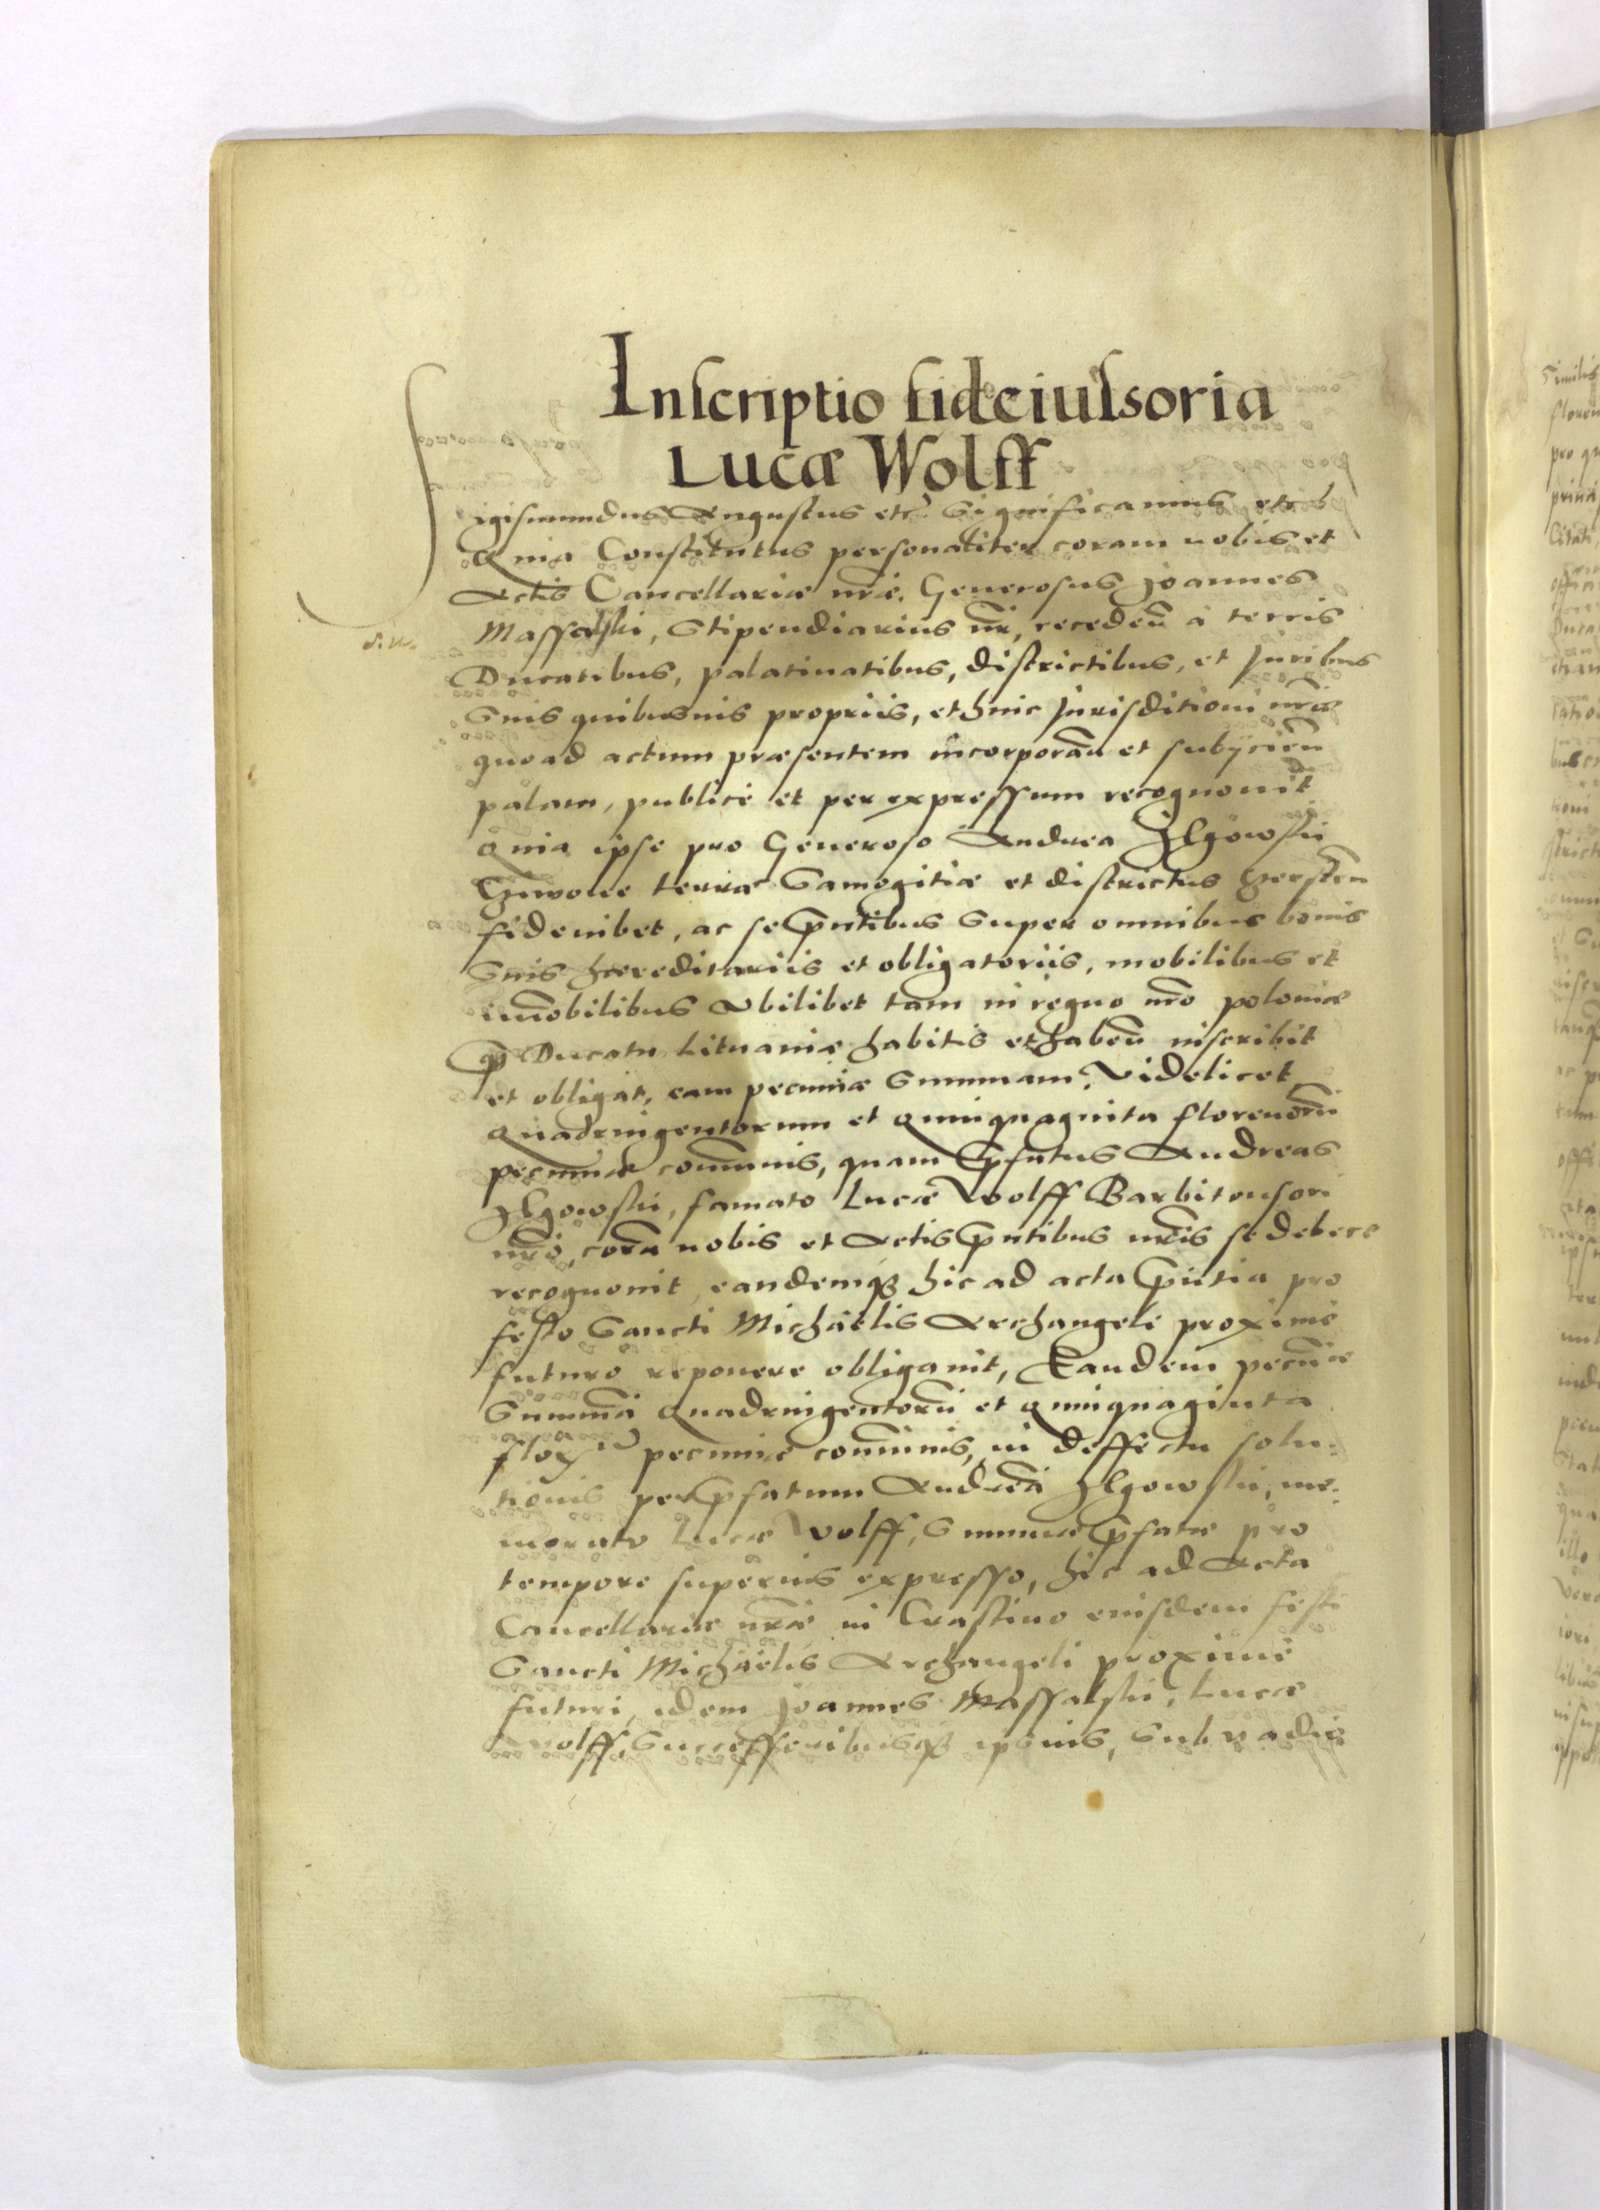 Inscriptio fideiussoria
Lucæ Wolff
Sigismundus Augustus etc. Significamus etc.
Quia Constitutus personaliter coram nobis et
Actis Cancellariæ nræ, Generosus Joannes
Massalski, Stipendiarius nr, recedeñ à terris
Ducatibus, palatinatibus, districtibus, et Juribus
Suis quibusuis propriis, et huic Jurisditioni nræ
quo ad actum præsentem incorporañ et subijcieñ
palam, publicè et per expressum recognouit
Quia ipse pro Generoso Andrea Ilgowski
Ciwone terræ Samogitiæ et districtus
fideiubet, ac se pntibus Super omnibus bonis
Suis hæreditariis et obligatoriis, mobilibus et
imobilibus Vbilibet tam in regno nro poloniæ
q Ducatu Lituaniæ habitis et habeñ inscribit
et obligat, eam pecuniæ Summam, Videlicet
Quadringentorum et Quinquaginta florenorũ
pecuniæ comunis, quam pfatus Andreas
Ilgowski, famato Lucæ Wolff Barbitonsori
nro, corã nobis et Actis pntibus nris se debere
recognouit, eandemq3 hic ad acta pntia pro
festo Sancti Michaëlis Archangeli proximè
futuro reponere obligauit, Eandem pecuniæ
Summã Quadringentorũ et Quinquaginta
flor pecuniæ comunis, in deffectu solu-
tionis per pfatum Andreã Ilgowski, me-
morato Lucæ Wolff, Summæ pfatæ pro
tempore superius expresso, hic ad Acta
Cancellariæ nræ in Crastino eiusdem festi
Sancti Michaëlis Archangeli proximè
futuri, idem Joannes Massalski, Lucæ
Wolff, Successoribusq3 ipsius, Sub vadio